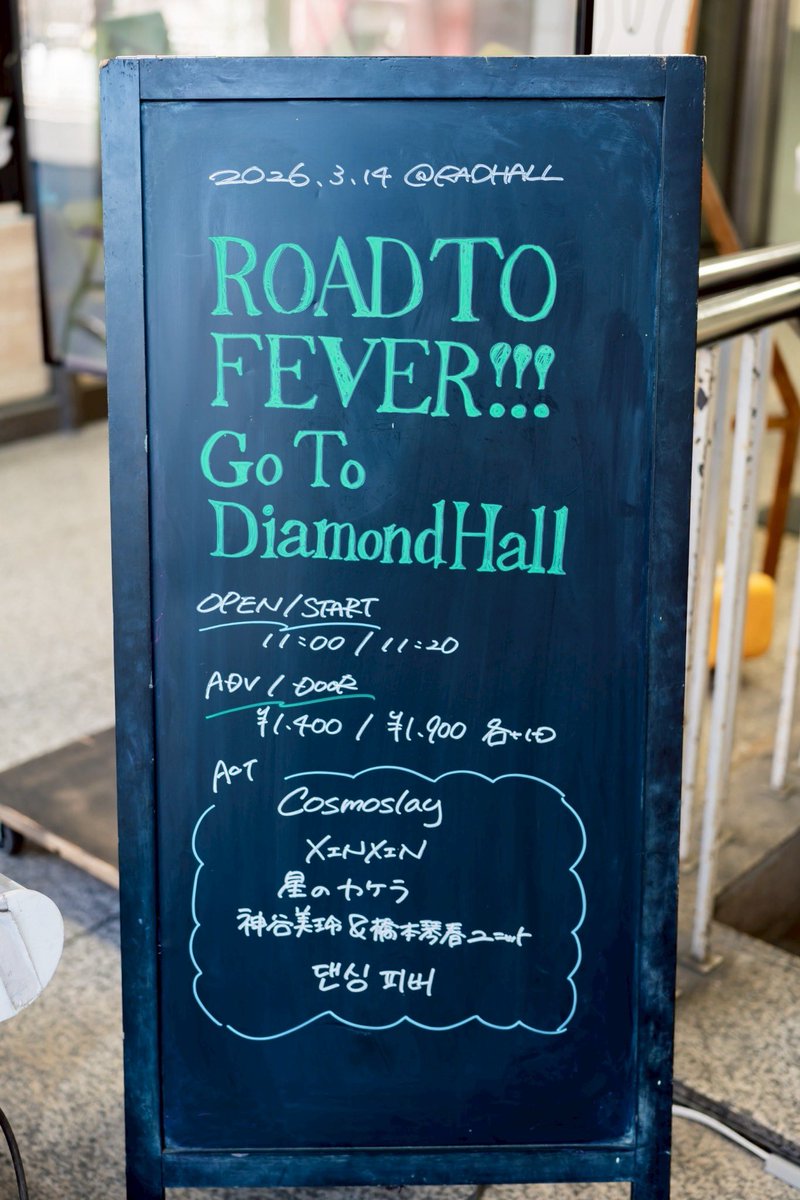 2026.3.14 @RADHALL
ROAD TO
FEVER!!!
Go To
DiamondHall
OPEN/START
11:00 / 11:20
ADV / DOOR
¥1.400 / ¥1.900 各+1D
ACT
Cosmoslay
XINXIN
星のカケラ
神谷美玲&橋本琴春ユニット
댄싱 피버